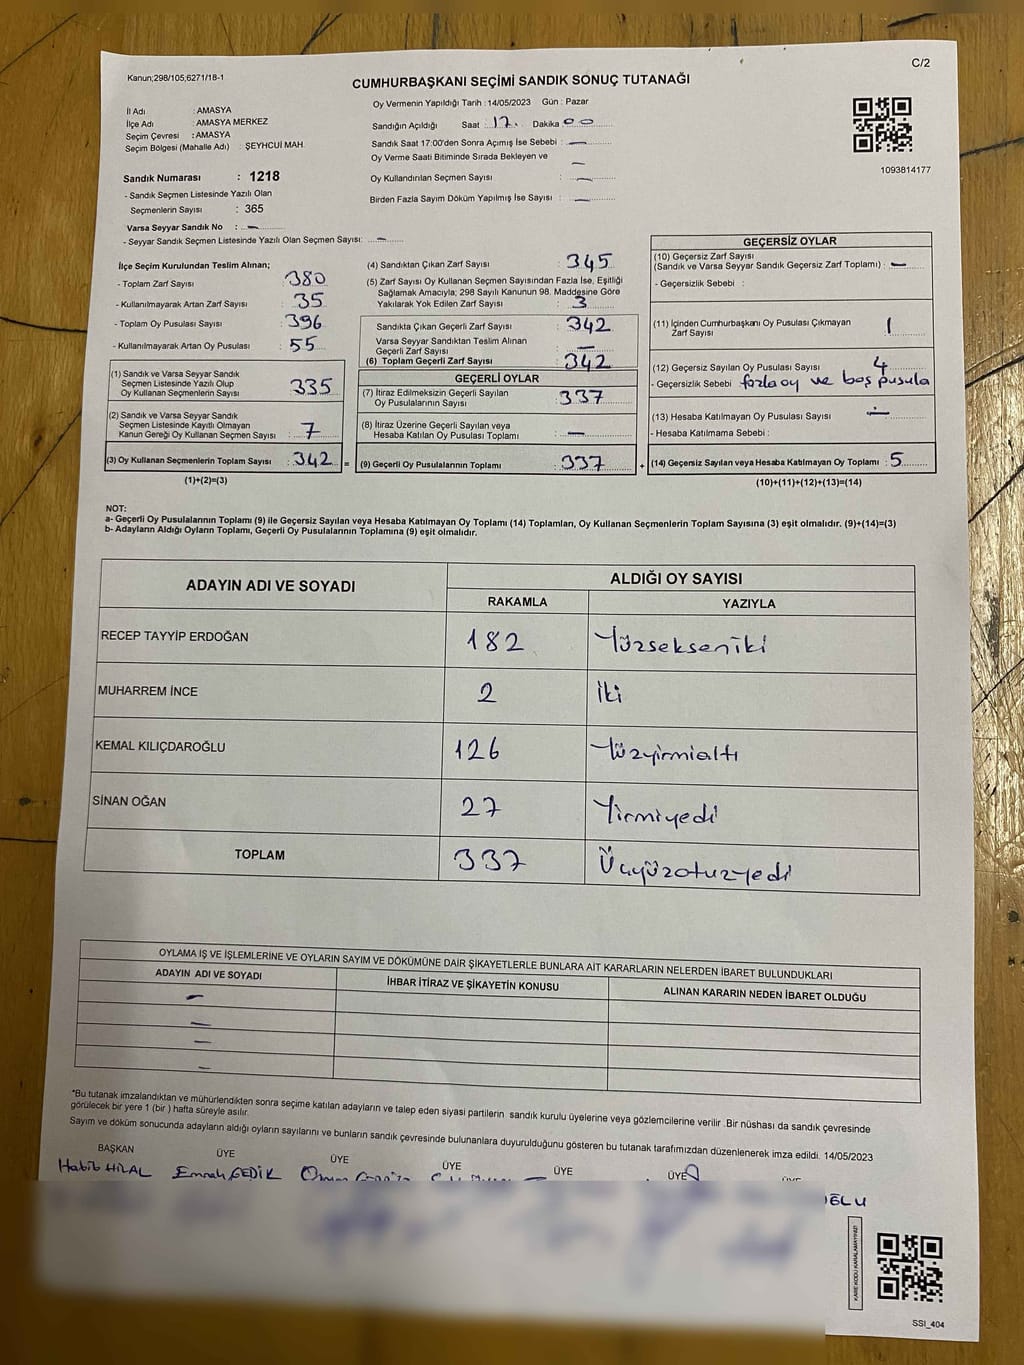 Kanun;298/105,6271/18-1
C/2
CUMHURBAŞKANI SEÇİMİ SANDIK SONUÇ TUTANAĞI
İl Adı : AMASYA
İlçe Adı : AMASYA MERKEZ
Seçim Çevresi : AMASYA
Seçim Bölgesi (Mahalle Adı) : ŞEYHCUİ MAH.
Sandık Numarası : 1218
- Sandık Seçmen Listesinde Yazılı Olan
Seçmenlerin Sayısı : 365
Varsa Seyyar Sandık No : -
- Seyyar Sandık Seçmen Listesinde Yazılı Olan Seçmen Sayısı: -
Oy Vermenin Yapıldığı Tarih : 14/05/2023 Gün : Pazar
Sandığın Açıldığı Saat : 17. Dakika : 00
Sandık Saat 17:00'den Sonra Açımış İse Sebebi : -
Oy Verme Saati Bitiminde Sırada Bekleyen ve -
Oy Kullandırılan Seçmen Sayısı : -
Birden Fazla Sayım Döküm Yapılmış İse Sayısı : -
1093814177
İlçe Seçim Kurulundan Teslim Alınan;
- Toplam Zarf Sayısı : 380
- Kullanılmayarak Artan Zarf Sayısı : 35
- Toplam Oy Pusulası Sayısı : 396
- Kullanılmayarak Artan Oy Pusulası : 55
(1) Sandık ve Varsa Seyyar Sandık
Seçmen Listesinde Yazılı Olup
Oy Kullanan Seçmenlerin Sayısı : 335
(2) Sandık ve Varsa Seyyar Sandık
Seçmen Listesinde Kayıtlı Olmayan
Kanun Gereği Oy Kullanan Seçmen Sayısı : 7
(3) Oy Kullanan Seçmenlerin Toplam Sayısı : 342 =
(1)+(2)=(3)
(4) Sandıktan Çıkan Zarf Sayısı : 345
(5) Zarf Sayısı Oy Kullanan Seçmen Sayısından Fazla İse, Eşitliği
Sağlamak Amacıyla; 298 Sayılı Kanunun 98. Maddesine Göre
Yakılarak Yok Edilen Zarf Sayısı : 3
Sandıkta Çıkan Geçerli Zarf Sayısı : 342
Varsa Seyyar Sandıktan Teslim Alınan
Geçerli Zarf Sayısı : -
(6) Toplam Geçerli Zarf Sayısı : 342
GEÇERLİ OYLAR
(7) İtiraz Edilmeksizin Geçerli Sayılan
Oy Pusulalarının Sayısı : 337
(8) İtiraz Üzerine Geçerli Sayılan veya
Hesaba Katılan Oy Pusulası Toplamı : -
(9) Geçerli Oy Pusulalarının Toplamı : 337 +
GEÇERSİZ OYLAR
(10) Geçersiz Zarf Sayısı
(Sandık ve Varsa Seyyar Sandık Geçersiz Zarf Toplamı) : -
- Geçersizlik Sebebi :
(11) İçinden Cumhurbaşkanı Oy Pusulası Çıkmayan
Zarf Sayısı : 1
(12) Geçersiz Sayılan Oy Pusulası Sayısı : 4
- Geçersizlik Sebebi : fazla oy ve boş pusula
(13) Hesaba Katılmayan Oy Pusulası Sayısı : -
- Hesaba Katılmama Sebebi :
(14) Geçersiz Sayılan veya Hesaba Katılmayan Oy Toplamı : 5
(10)+(11)+(12)+(13)=(14)
NOT:
a- Geçerli Oy Pusulalarının Toplamı (9) ile Geçersiz Sayılan veya Hesaba Katılmayan Oy Toplamı (14) Toplamları, Oy Kullanan Seçmenlerin Toplam Sayısına (3) eşit olmalıdır. (9)+(14)=(3)
b- Adayların Aldığı Oyların Toplamı, Geçerli Oy Pusulalarının Toplamına (9) eşit olmalıdır.
ADAYIN ADI VE SOYADI
ALDIĞI OY SAYISI
RAKAMLA YAZIYLA
RECEP TAYYİP ERDOĞAN 182 Yüzsekseniki
MUHARREM İNCE 2 İki
KEMAL KILIÇDAROĞLU 126 Yüzyirmialtı
SİNAN OĞAN 27 Yirmiyedi
TOPLAM 337 Üçyüzotuzyedi
OYLAMA İŞ VE İŞLEMLERİNE VE OYLARIN SAYIM VE DÖKÜMÜNE DAİR ŞİKAYETLERLE BUNLARA AİT KARARLARIN NELERDEN İBARET BULUNDUKLARI
ADAYIN ADI VE SOYADI
İHBAR İTİRAZ VE ŞİKAYETİN KONUSU
ALINAN KARARIN NEDEN İBARET OLDUĞU
-
-
-
-
*Bu tutanak imzalandıktan ve mühürlendikten sonra seçime katılan adayların ve talep eden siyasi partilerin sandık kurulu üyelerine veya gözlemcilerine verilir .Bir nüshası da sandık çevresinde
görülecek bir yere 1 (bir ) hafta süreyle asılır.
Sayım ve döküm sonucunda adayların aldığı oyların sayılarını ve bunların sandık çevresinde bulunanlara duyurulduğunu gösteren bu tutanak tarafımızdan düzenlenerek imza edildi. 14/05/2023
BAŞKAN ÜYE ÜYE ÜYE ÜYE ÜYE
Habib HİLAL Emrah GEDİK
KARE KODU KARALAMAYINIZ!
SSI_404